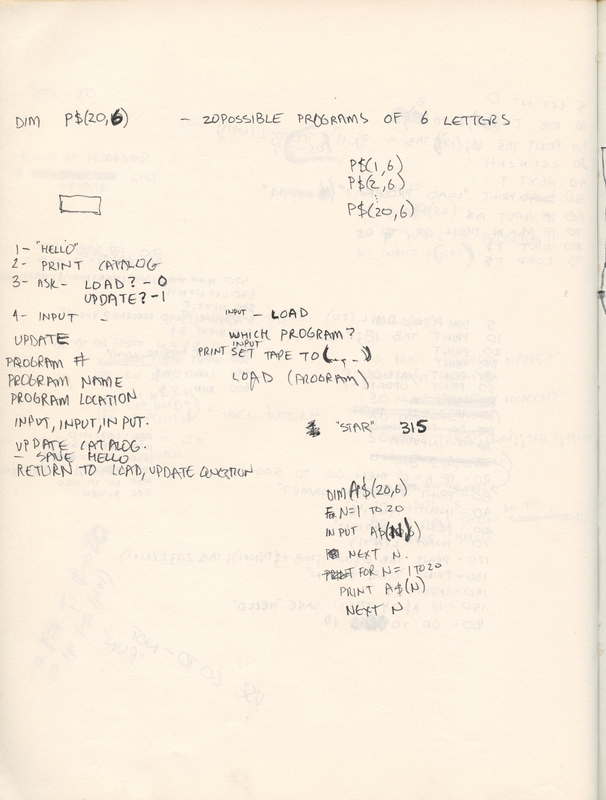 DIM P$(20,6) - 20 POSSIBLE PROGRAMS OF 6 LETTERS
P$(1,6)
P$(2,6)
P$(20,6)
1 - "HELLO"
2 - PRINT CATALOG
3 - ASK - LOAD? - 0
UPDATE? - 1
4 - INPUT -
UPDATE
PROGRAM #
PROGRAM NAME
PROGRAM LOCATION
INPUT, INPUT, INPUT.
UPDATE CATALOG.
- SAVE HELLO
RETURN TO LOAD, UPDATE QUESTION
INPUT - LOAD
WHICH PROGRAM?
INPUT
PRINT SET TAPE TO (...)
LOAD (PROGRAM)
"STAR" 315
DIM A$(20,6)
FOR N=1 TO 20
INPUT A$(N)
NEXT N.
FOR N=1 TO 20
PRINT A$(N)
NEXT N